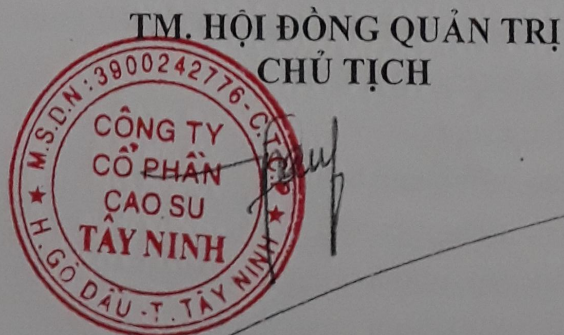 TM. HỘI ĐỒNG QUẢN TRỊ
CHỦ TỊCH
M.S.D.N:3900242776-C.T.C.P
CÔNG TY
CỔ PHẦN
CAO SU
TÂY NINH
★ H. GÒ DẦU - T. TÂY NINH ★